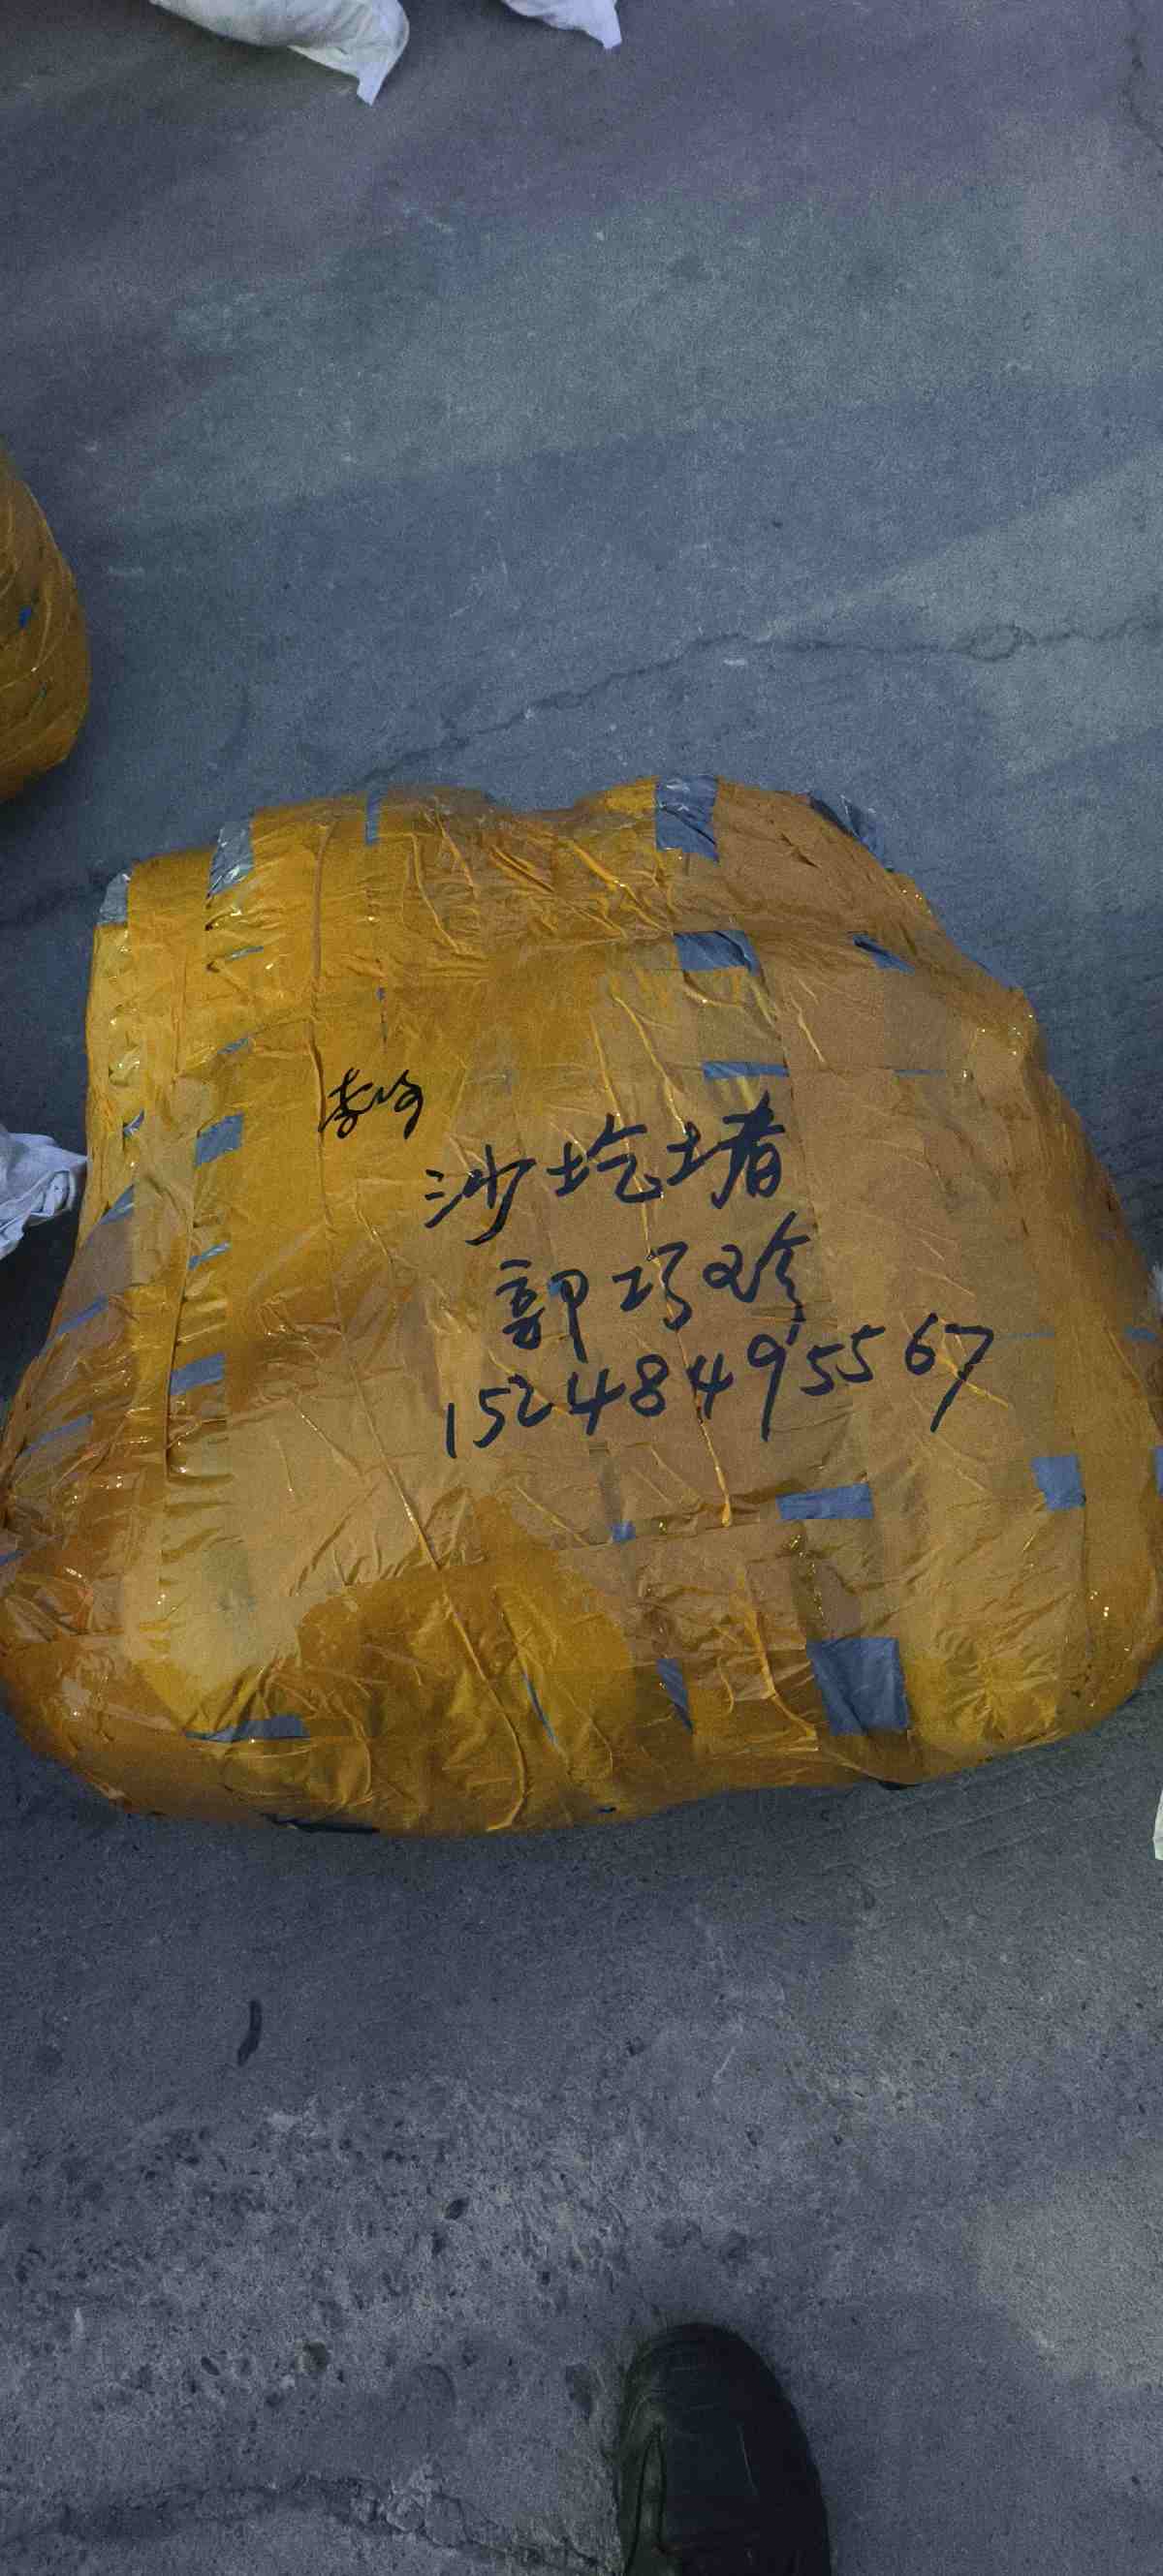 沙圪堵
郭巧珍
15248495567